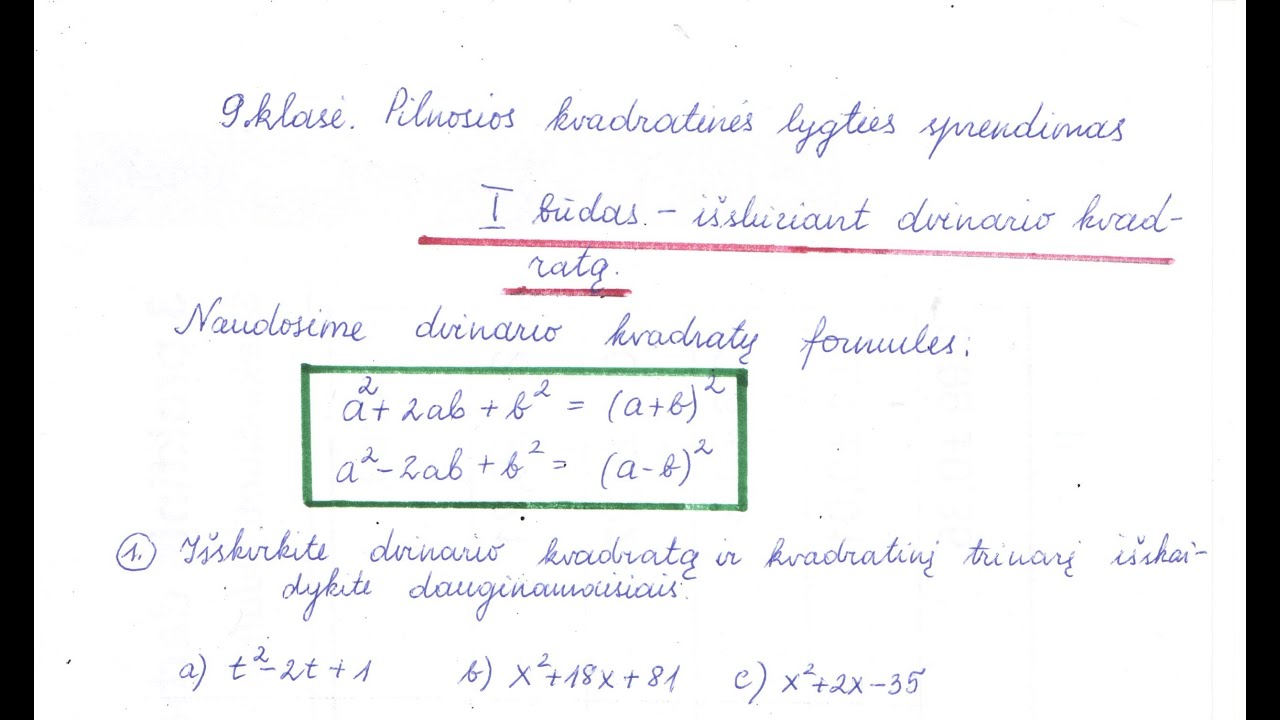 9 klasė. Pilnosios kvadratinės lygties sprendimas
I būdas. – išskiriant dvinario kvad-
ratą.
Naudosime dvinario kvadratų formules:
a² + 2ab + b² = (a+b)²
a² - 2ab + b² = (a-b)²
1. Išskirkite dvinario kvadratą ir kvadratinį trinarį išskai-
dykite dauginamaisiais.
a) t² - 2t + 1 b) x² + 18x + 81 c) x² + 2x - 35